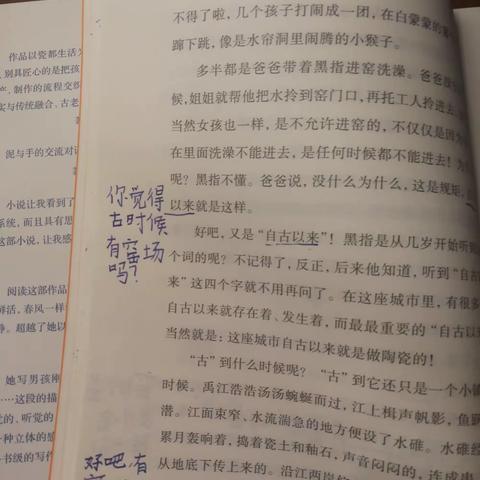 作品以瓷都生活为
别具匠心的是把孩
制作的流程交织
实与传统融合、古老
泥与手的交流对话
小说让我看到了
系统，而且具有思
这部小说，让我感
阅读这部作品
鲜活，春风一样
静。超越了她以
她写男孩
……这段的描
的、听觉的
一种立体的感
书级的写作
不得了啦，几个孩子打闹成一团，在白蒙蒙的
蹿下跳，像是水帘洞里闹腾的小猴子。
多半都是爸爸带着黑指进窑洗澡。爸爸
候，姐姐就帮他把水拎到窑门口，再托工人拎进去
当然女孩也一样，是不允许进窑的，不仅仅是因为
在里面洗澡不能进去，是任何时候都不能进去！为
呢？黑指不懂。爸爸说，没什么为什么，这是规矩，
以来就是这样。
好吧，又是“自古以来”！黑指是从几岁开始听到
个词的呢？不记得了，反正，后来他知道，听到“自古
来”这四个字就不用再问了。在这座城市里，有很多
自古以来就存在着、发生着，而最最重要的“自古以
当然就是：这座城市自古以来就是做陶瓷的！
“古”到什么时候呢？ “古”到它还只是一个小镇
时候。禹江浩浩汤汤蜿蜒而过，江上楫声帆影，鱼
潜。江面束窄、水流湍急的地方便设了水碓。水碓经
累月轰响着，捣着瓷土和釉石，声音闷闷的，连成串
从地底下传上来的。沿江两岸
你觉得
古时候
有窑场
吗？
好吧，有